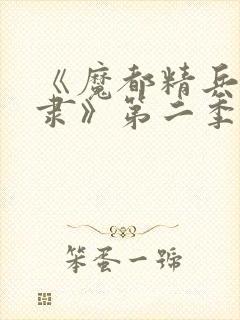 《魔都精兵
隶》第二季
笨蛋一號